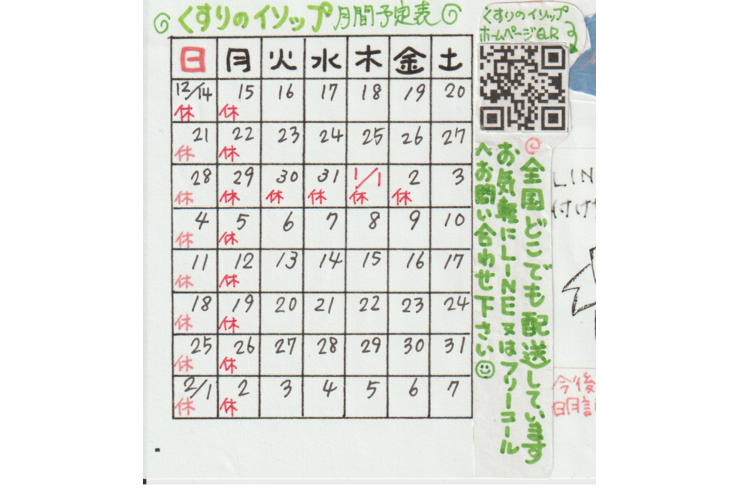 くすりのイソップ月間予定表
日 月 火 水 木 金 土
12/14 15 16 17 18 19 20
休 休
21 22 23 24 25 26 27
休 休
28 29 30 31 1/1 2 3
休 休 休 休 休 休
4 5 6 7 8 9 10
休 休
11 12 13 14 15 16 17
休 休
18 19 20 21 22 23 24
休 休
25 26 27 28 29 30 31
休 休
2/1 2 3 4 5 6 7
休 休
くすりのイソップ
ホームページQR
全国どこでも配送しています
お気軽にLINE又はフリーコール
へお問い合わせ下さい
LIN
付け
今後